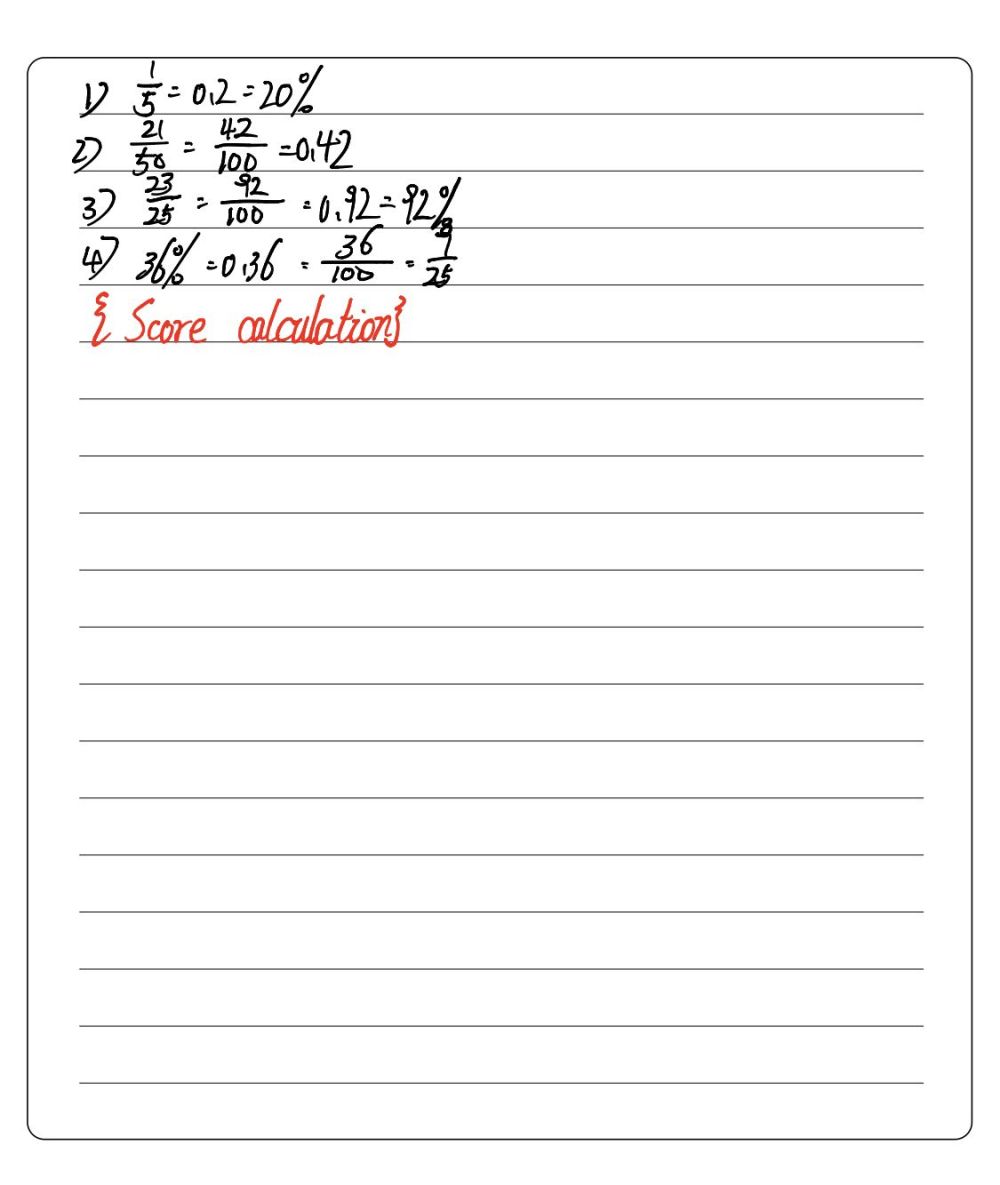 1) 1/5 = 0.2 = 20%
2) 21/50 = 42/100 = 0.42
3) 23/25 = 92/100 = 0.92 = 92%
4) 36% = 0.36 = 36/100 = 9/25
{ Score calculation}